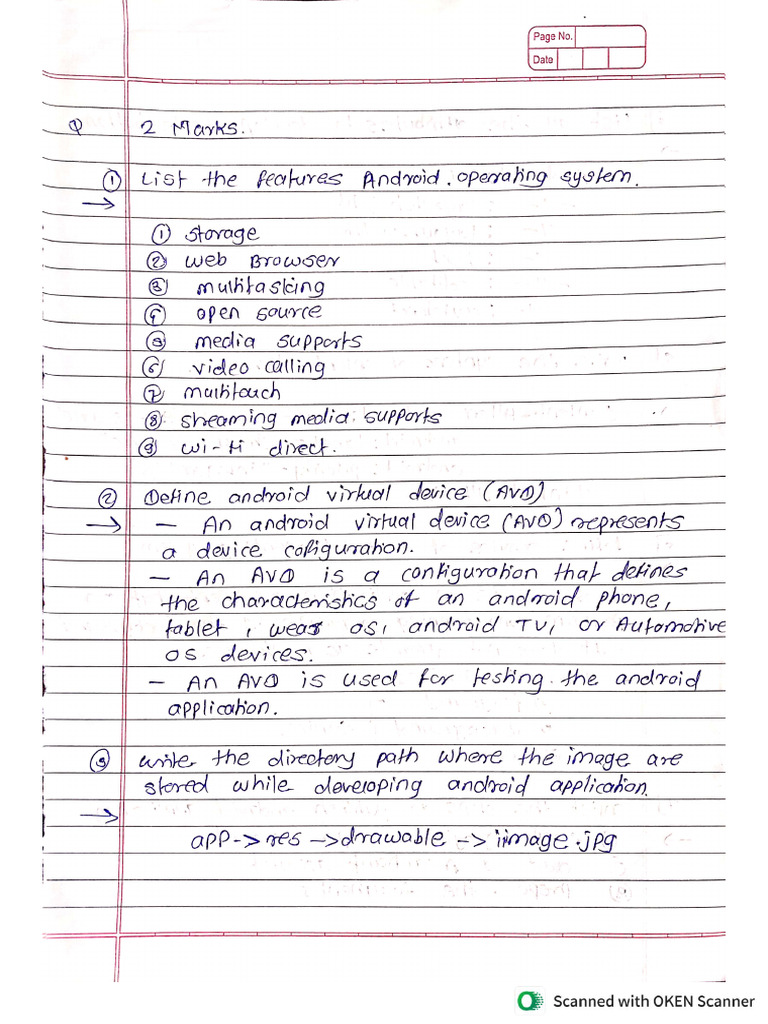 Page No.
Date
Q 2 Marks.
① List the features Android. operating system.
→
① storage
② web Browser
③ multitasking
④ open source
⑤ media supports
⑥ video calling
⑦ multitouch
⑧ streaming media supports
⑨ wi-fi direct.
② Define android virtual device (AVD)
→ – An android virtual device (AVD) represents
a device cofiguration.
– An AVD is a configuration that defines
the characteristics of an android phone,
tablet, wear os, android TV, or Automotive
OS devices.
– An AVD is used for testing the android
application.
③ write the directory path where the image are
stored while developing android application.
→
app -> res -> drawable -> iimage.jpg
Scanned with OKEN Scanner